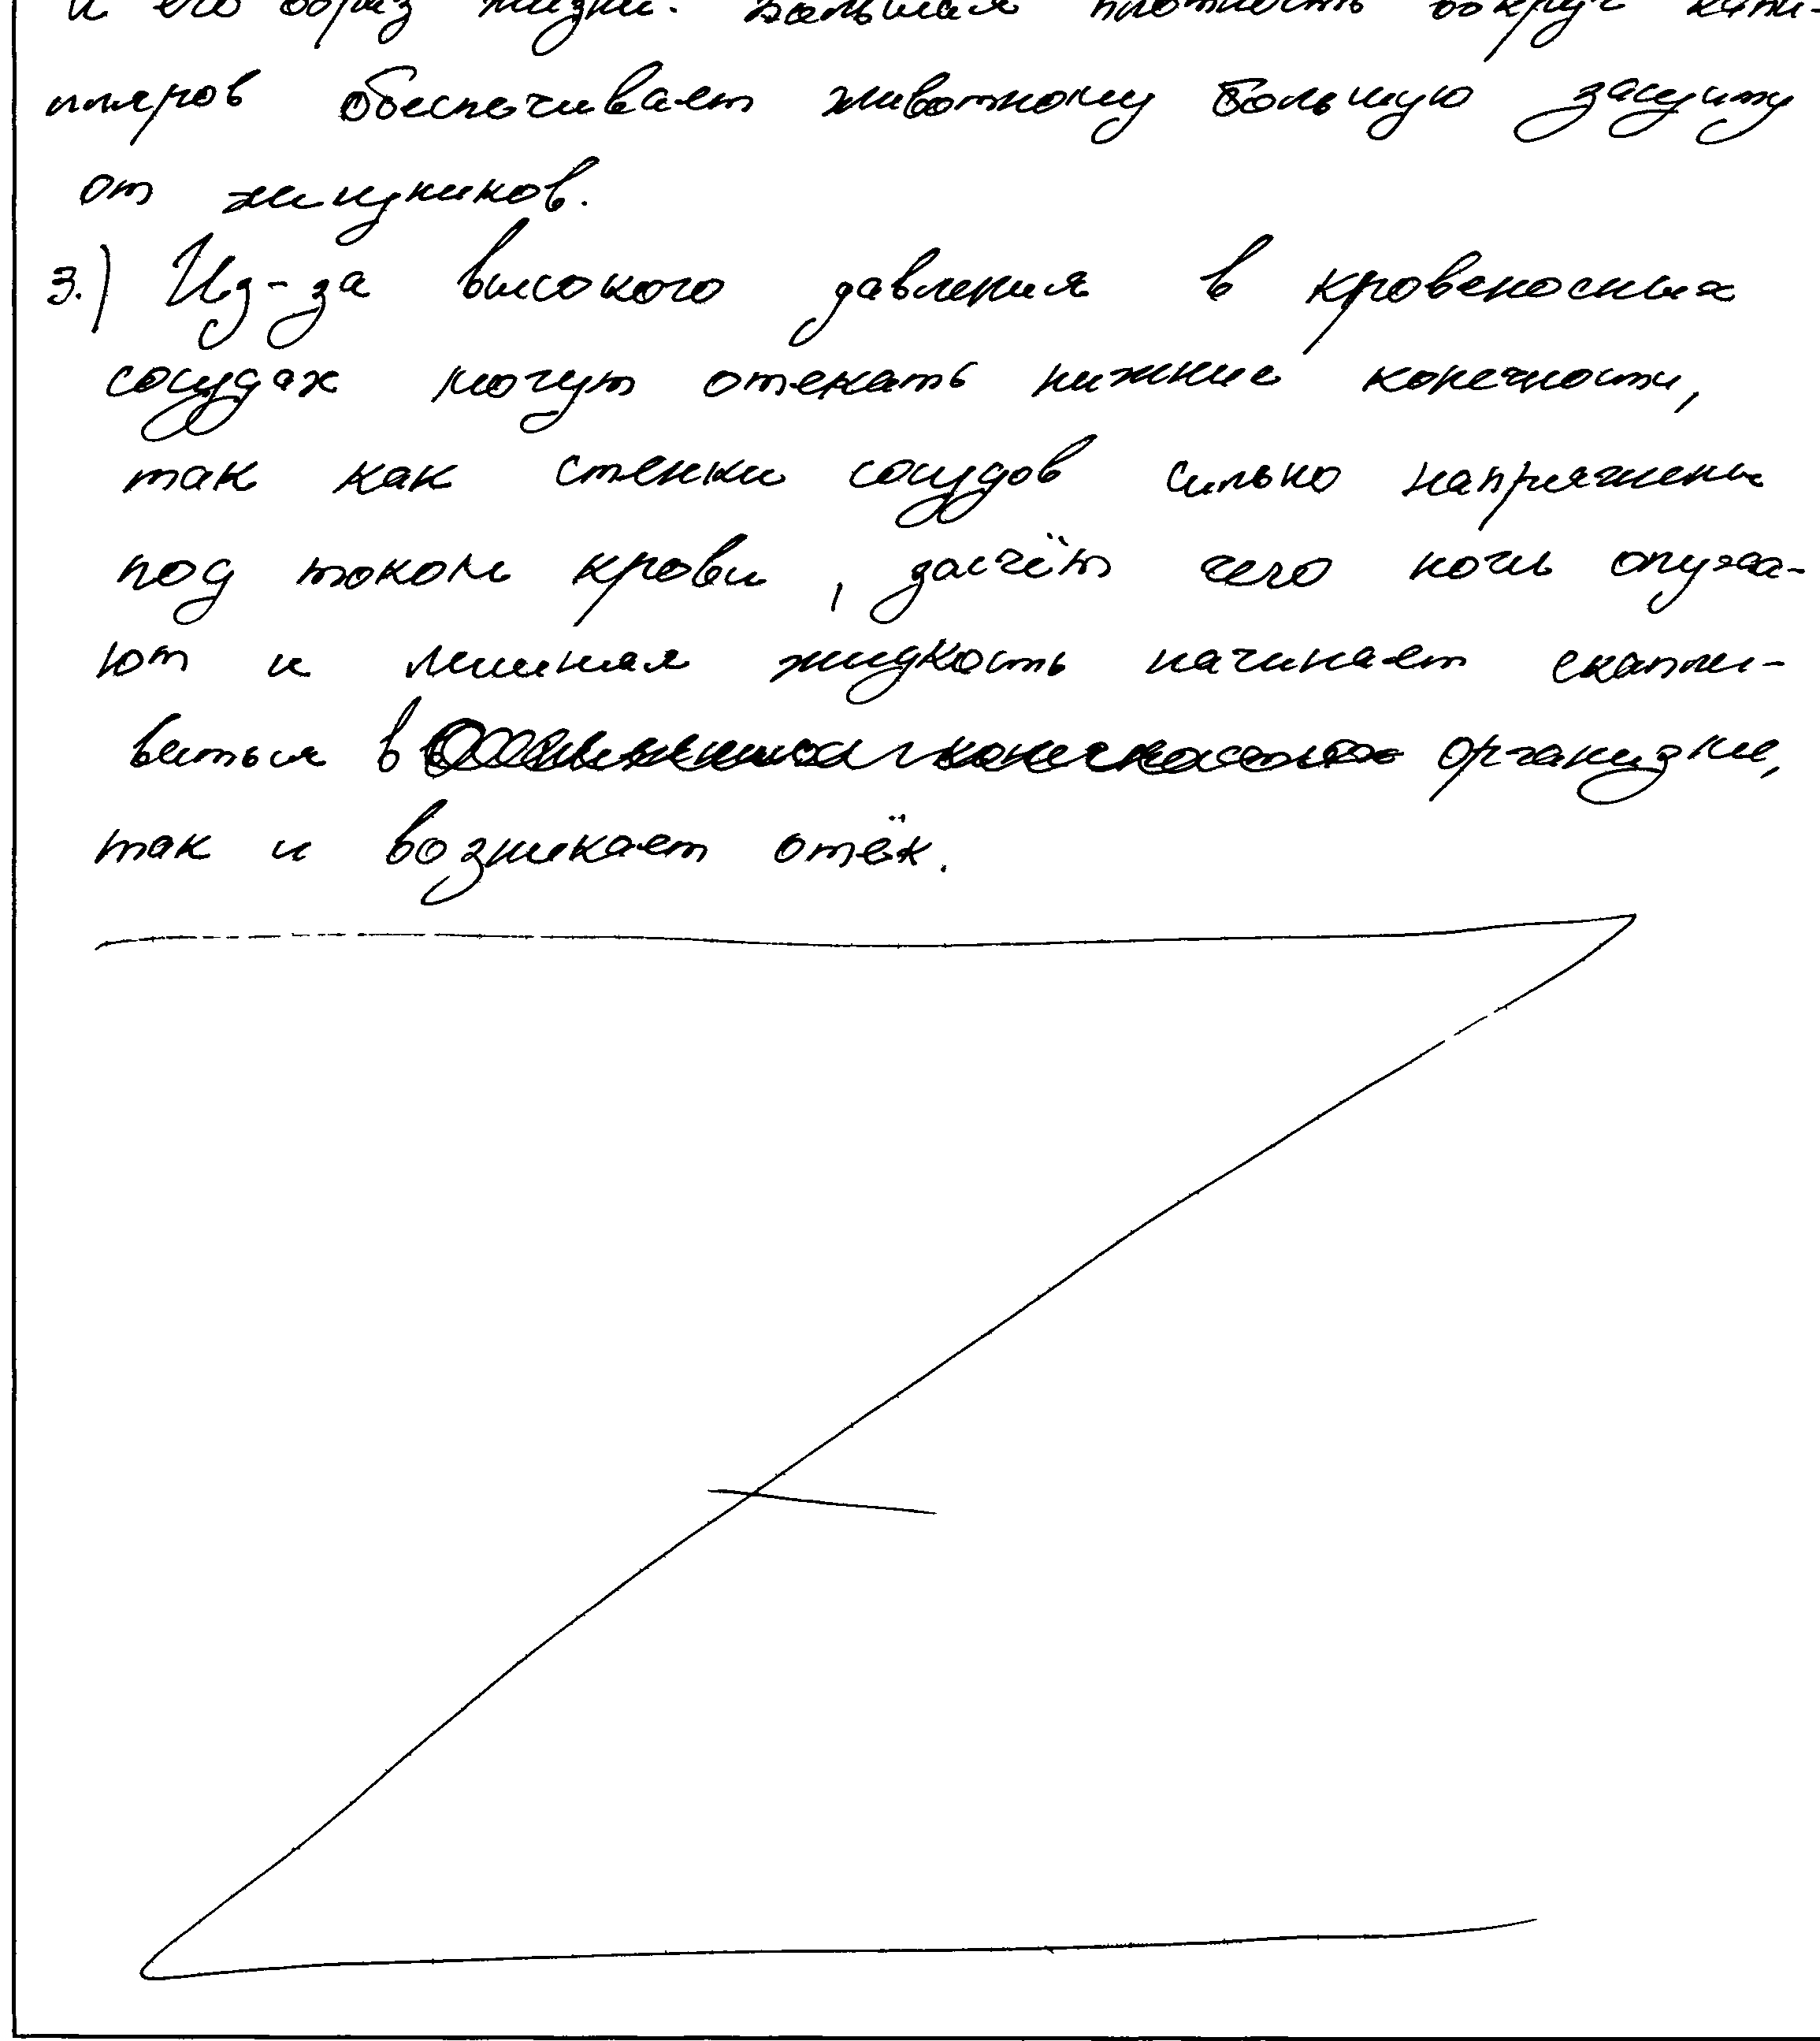 и его образ жизни. Большая плотность вокруг капи-
лляров обеспечивает животному большую защиту
от хищников.
3.) Из-за высокого давления в кровеносных
сосудах могут отекать нижние конечности,
так как стенки сосудов сильно напряжены
под током крови, засчёт чего ночь опуха-
ют и лишная жидкость начинает скапли-
ваться в организме,
так и возникает отёк.